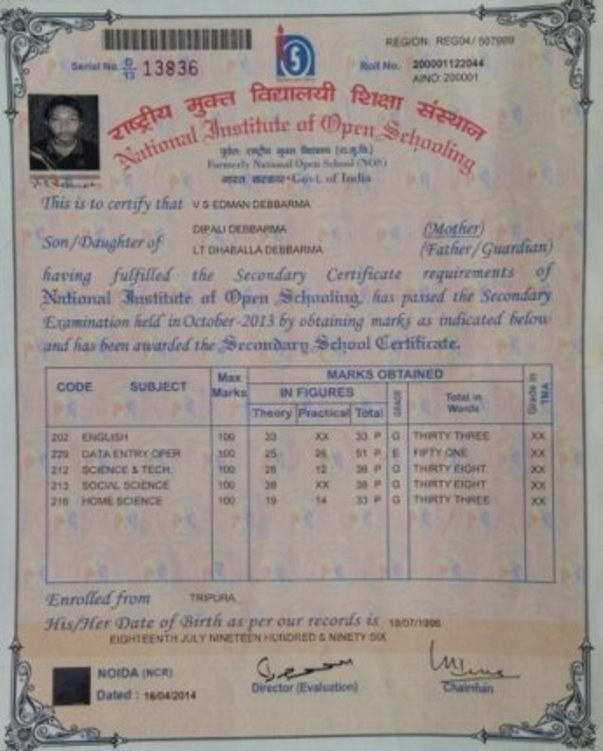 REGION: REG04/ 507999
Serial No. D/13 13836
Roll No. 200001122044
AINO: 200001
राष्ट्रीय मुक्त विद्यालयी शिक्षा संस्थान
National Institute of Open Schooling
Formerly National Open School (NOS)
भारत सरकार Govt. of India
This is to certify that V S EDMAN DEBBARMA
DIPALI DEBBARMA (Mother)
Son/Daughter of
LT DHABALLA DEBBARMA (Father/Guardian)
having fulfilled the Secondary Certificate requirements of
National Institute of Open Schooling, has passed the Secondary
Examination held in October-2013 by obtaining marks as indicated below
and has been awarded the Secondary School Certificate.
CODE SUBJECT Max Marks MARKS OBTAINED Grade in TMA
IN FIGURES GRADE Total in Words
Theory Practical Total
202 ENGLISH 100 33 XX 33 P G THIRTY THREE XX
229 DATA ENTRY OPER 100 25 26 51 P E FIFTY ONE XX
212 SCIENCE & TECH 100 26 12 38 P G THIRTY EIGHT XX
213 SOCIAL SCIENCE 100 38 XX 38 P G THIRTY EIGHT XX
216 HOME SCIENCE 100 19 14 33 P G THIRTY THREE XX
Enrolled from TRIPURA
His/Her Date of Birth as per our records is 18/07/1996
EIGHTEENTH JULY NINETEEN HUNDRED & NINETY SIX
NOIDA (NCR)
Dated : 16/04/2014
Director (Evaluation)
Chairman